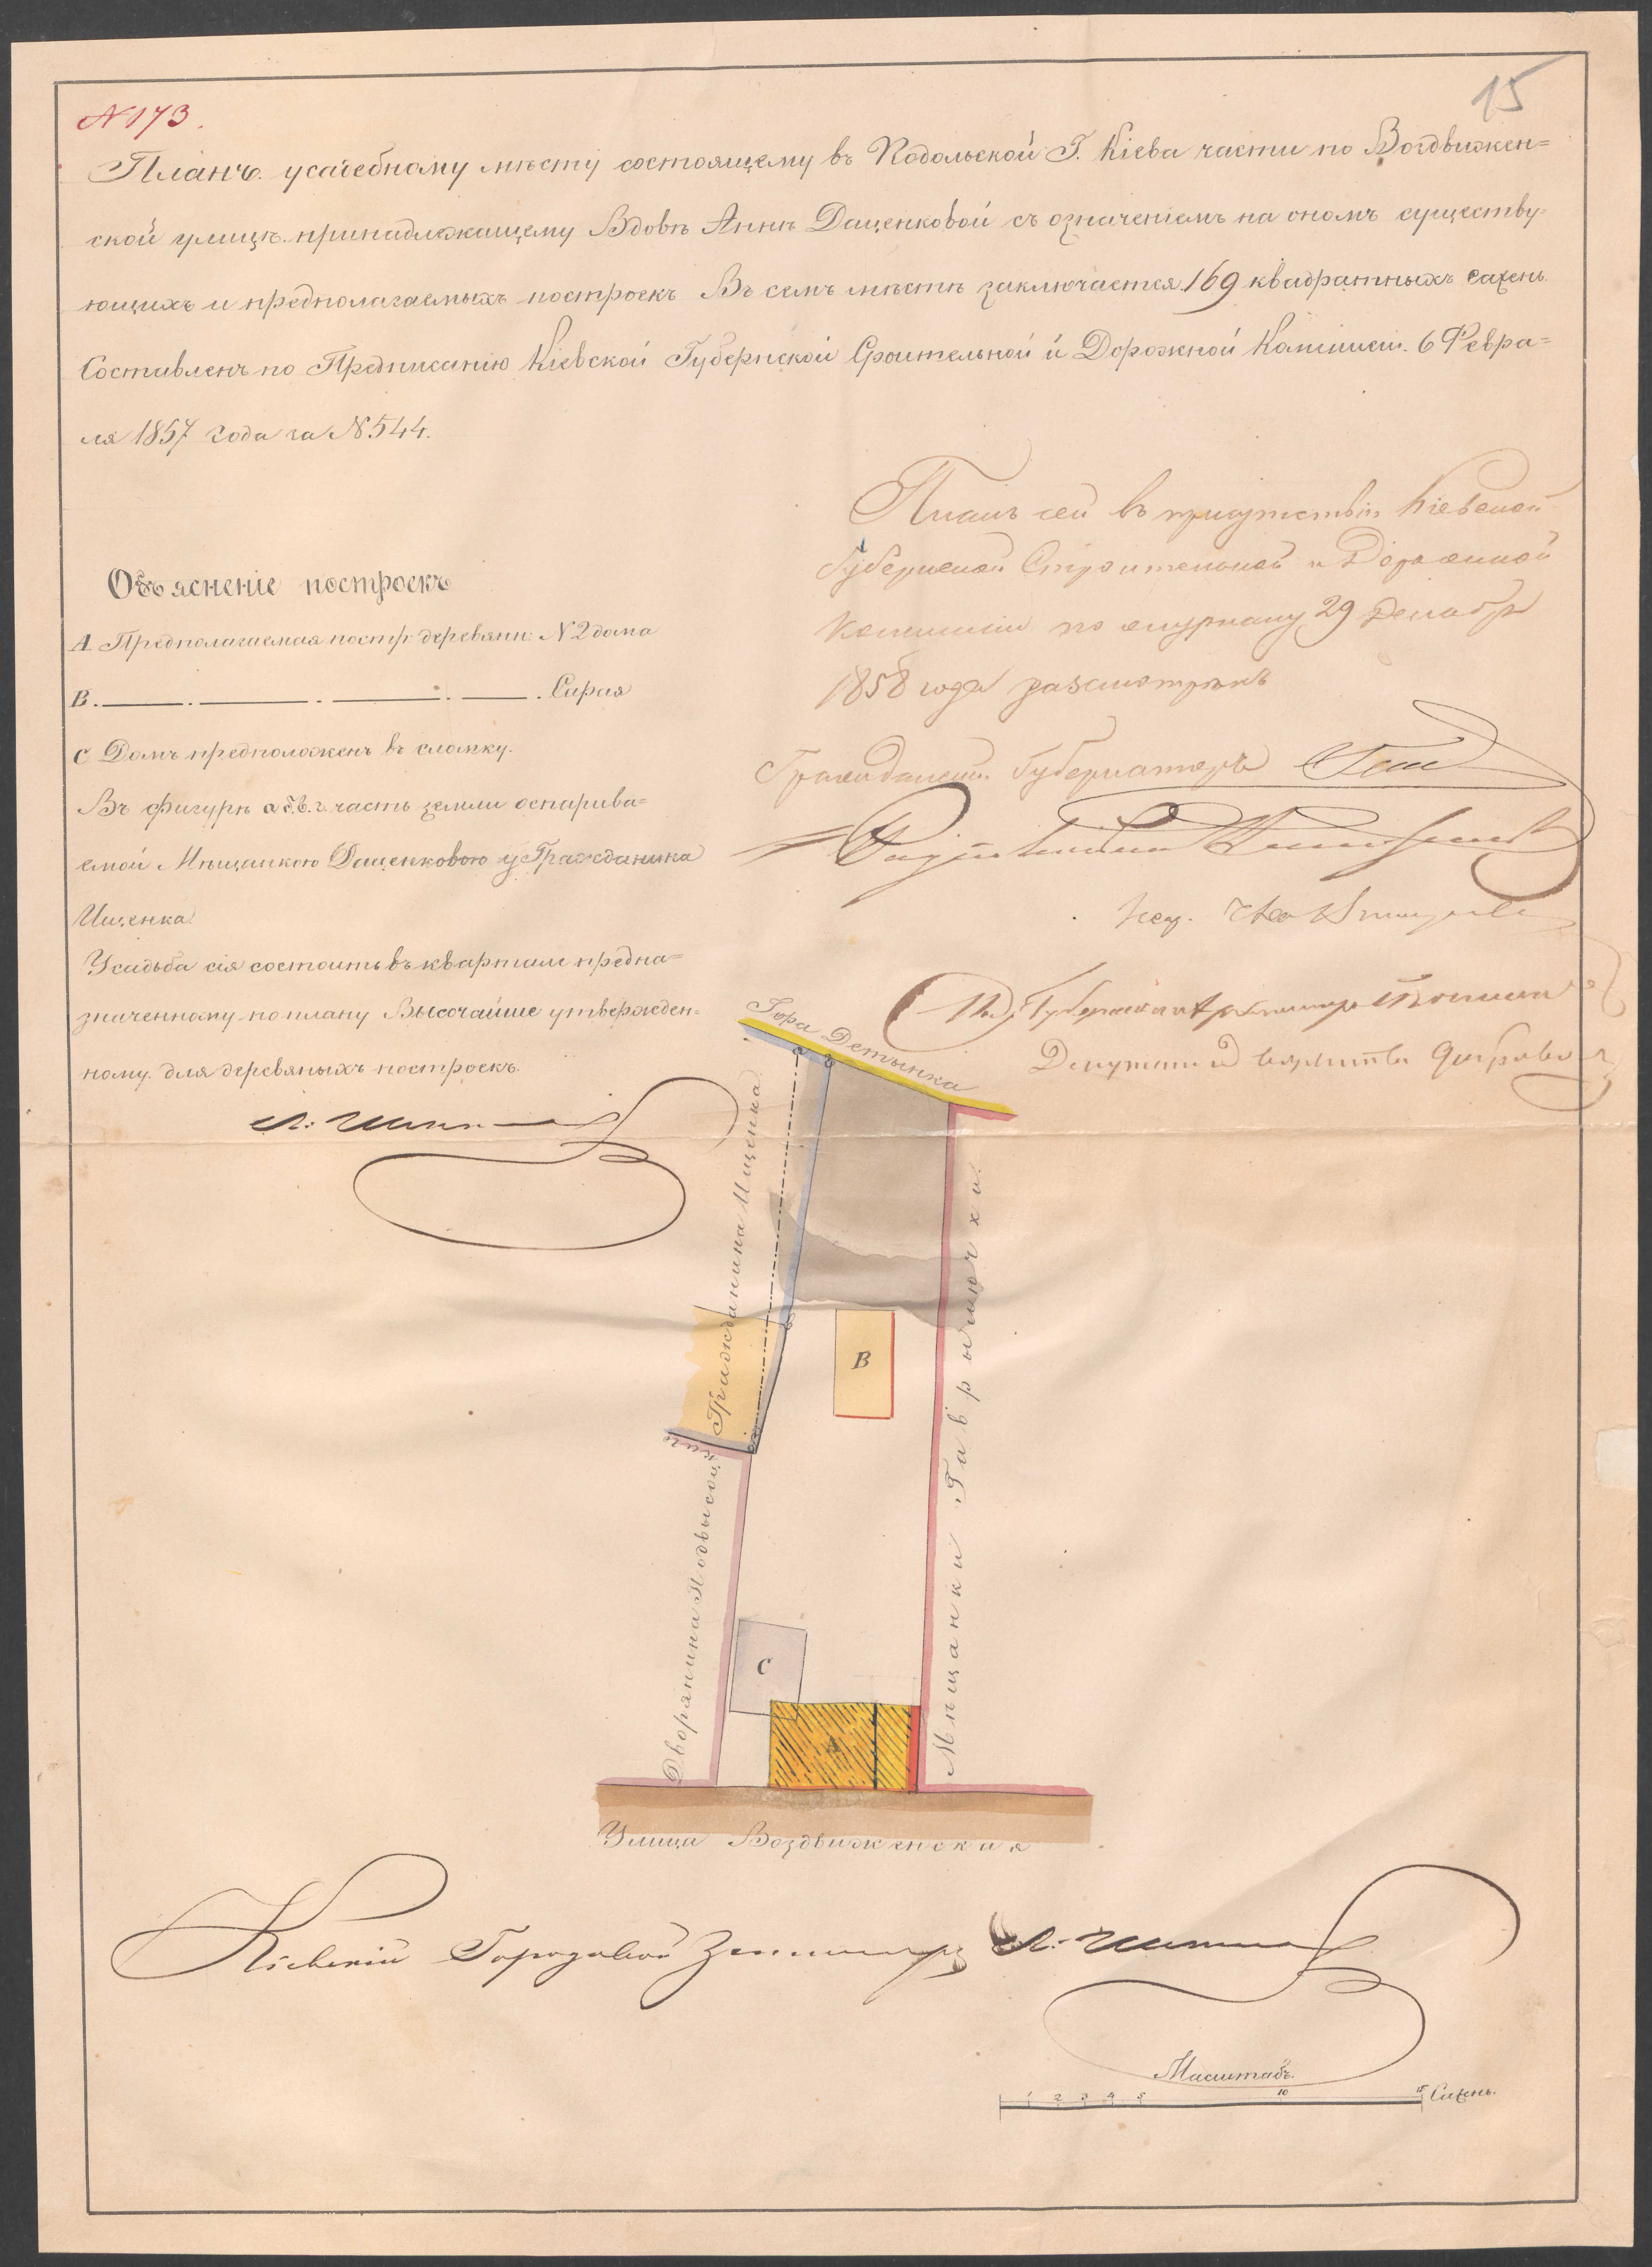 N 173.
15
Планъ усадебному мѣсту состоящему въ Подольской Г. Кіева части по Воздвижен=
ской улицѣ принадлежащему Вдовѣ Аннѣ Даценковой съ означеніемъ на ономъ существу=
ющихъ и предполагаемыхъ построекъ Въ семъ мѣстѣ заключается 169 квадратныхъ сажень.
Составленъ по Предписанію Кіевской Губернской Строительной и Дорожной Комисіи. 6 Февра=
ля 1857 года за N 544.
Планъ сей въ присутствіи Кіевской
Губернской Строительной и Дорожной
Комисіи по журналу 29 Декабр
1858 года разсмотрѣнъ
Гражданск. Губернаторъ
Объясненіе построекъ
А Предполагаемая постр. деревянн: N 2 дома
В . ——— . ——— . ——— . ——— . Сарая
С Домъ предположенъ въ сломку.
Въ фигурѣ а.б.в.г. часть земли оспарива=
емой Мѣщанкою Даценковою у Гражданина
Ищенка
Усадьба сія состоитъ въ кварталѣ предна=
значенному по плану Высочайше утвержден=
ному для деревяныхъ построекъ.
Губернскій Архитекторъ
Гора Детынка
Гражданина Ищенка
Мѣщанки Гаврычючки
Дворянина Подвысоцкаго
В
С
А
Улица Воздвиженская
Кіевскій Городовой Землемѣръ
Масштабъ.
1 2 3 4 5 10 15 Сажень.